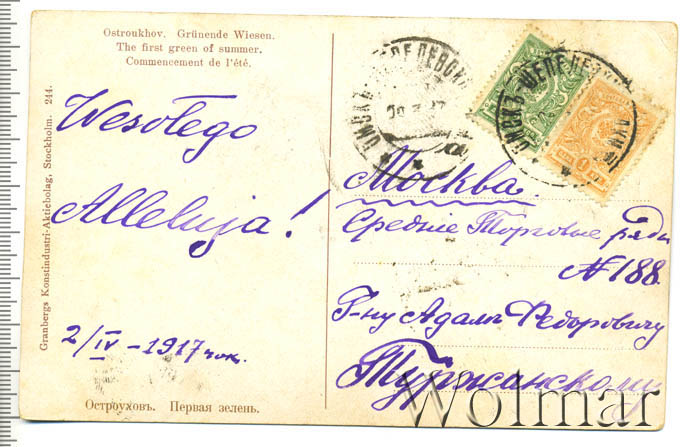 Ostroukhov. Grünende Wiesen.
The first green of summer.
Commencement de l'été.
Granbergs Konstindustri-Aktiebolag, Stockholm. 244.
Wesołego
Alleluja!
2/IV - 1917 rok.
Остроуховъ. Первая зелень.
Москва.
Средніе Торговые ряды
№ 188.
Г-ну Адаму Федоровичу
Туржанскому
Wolmar